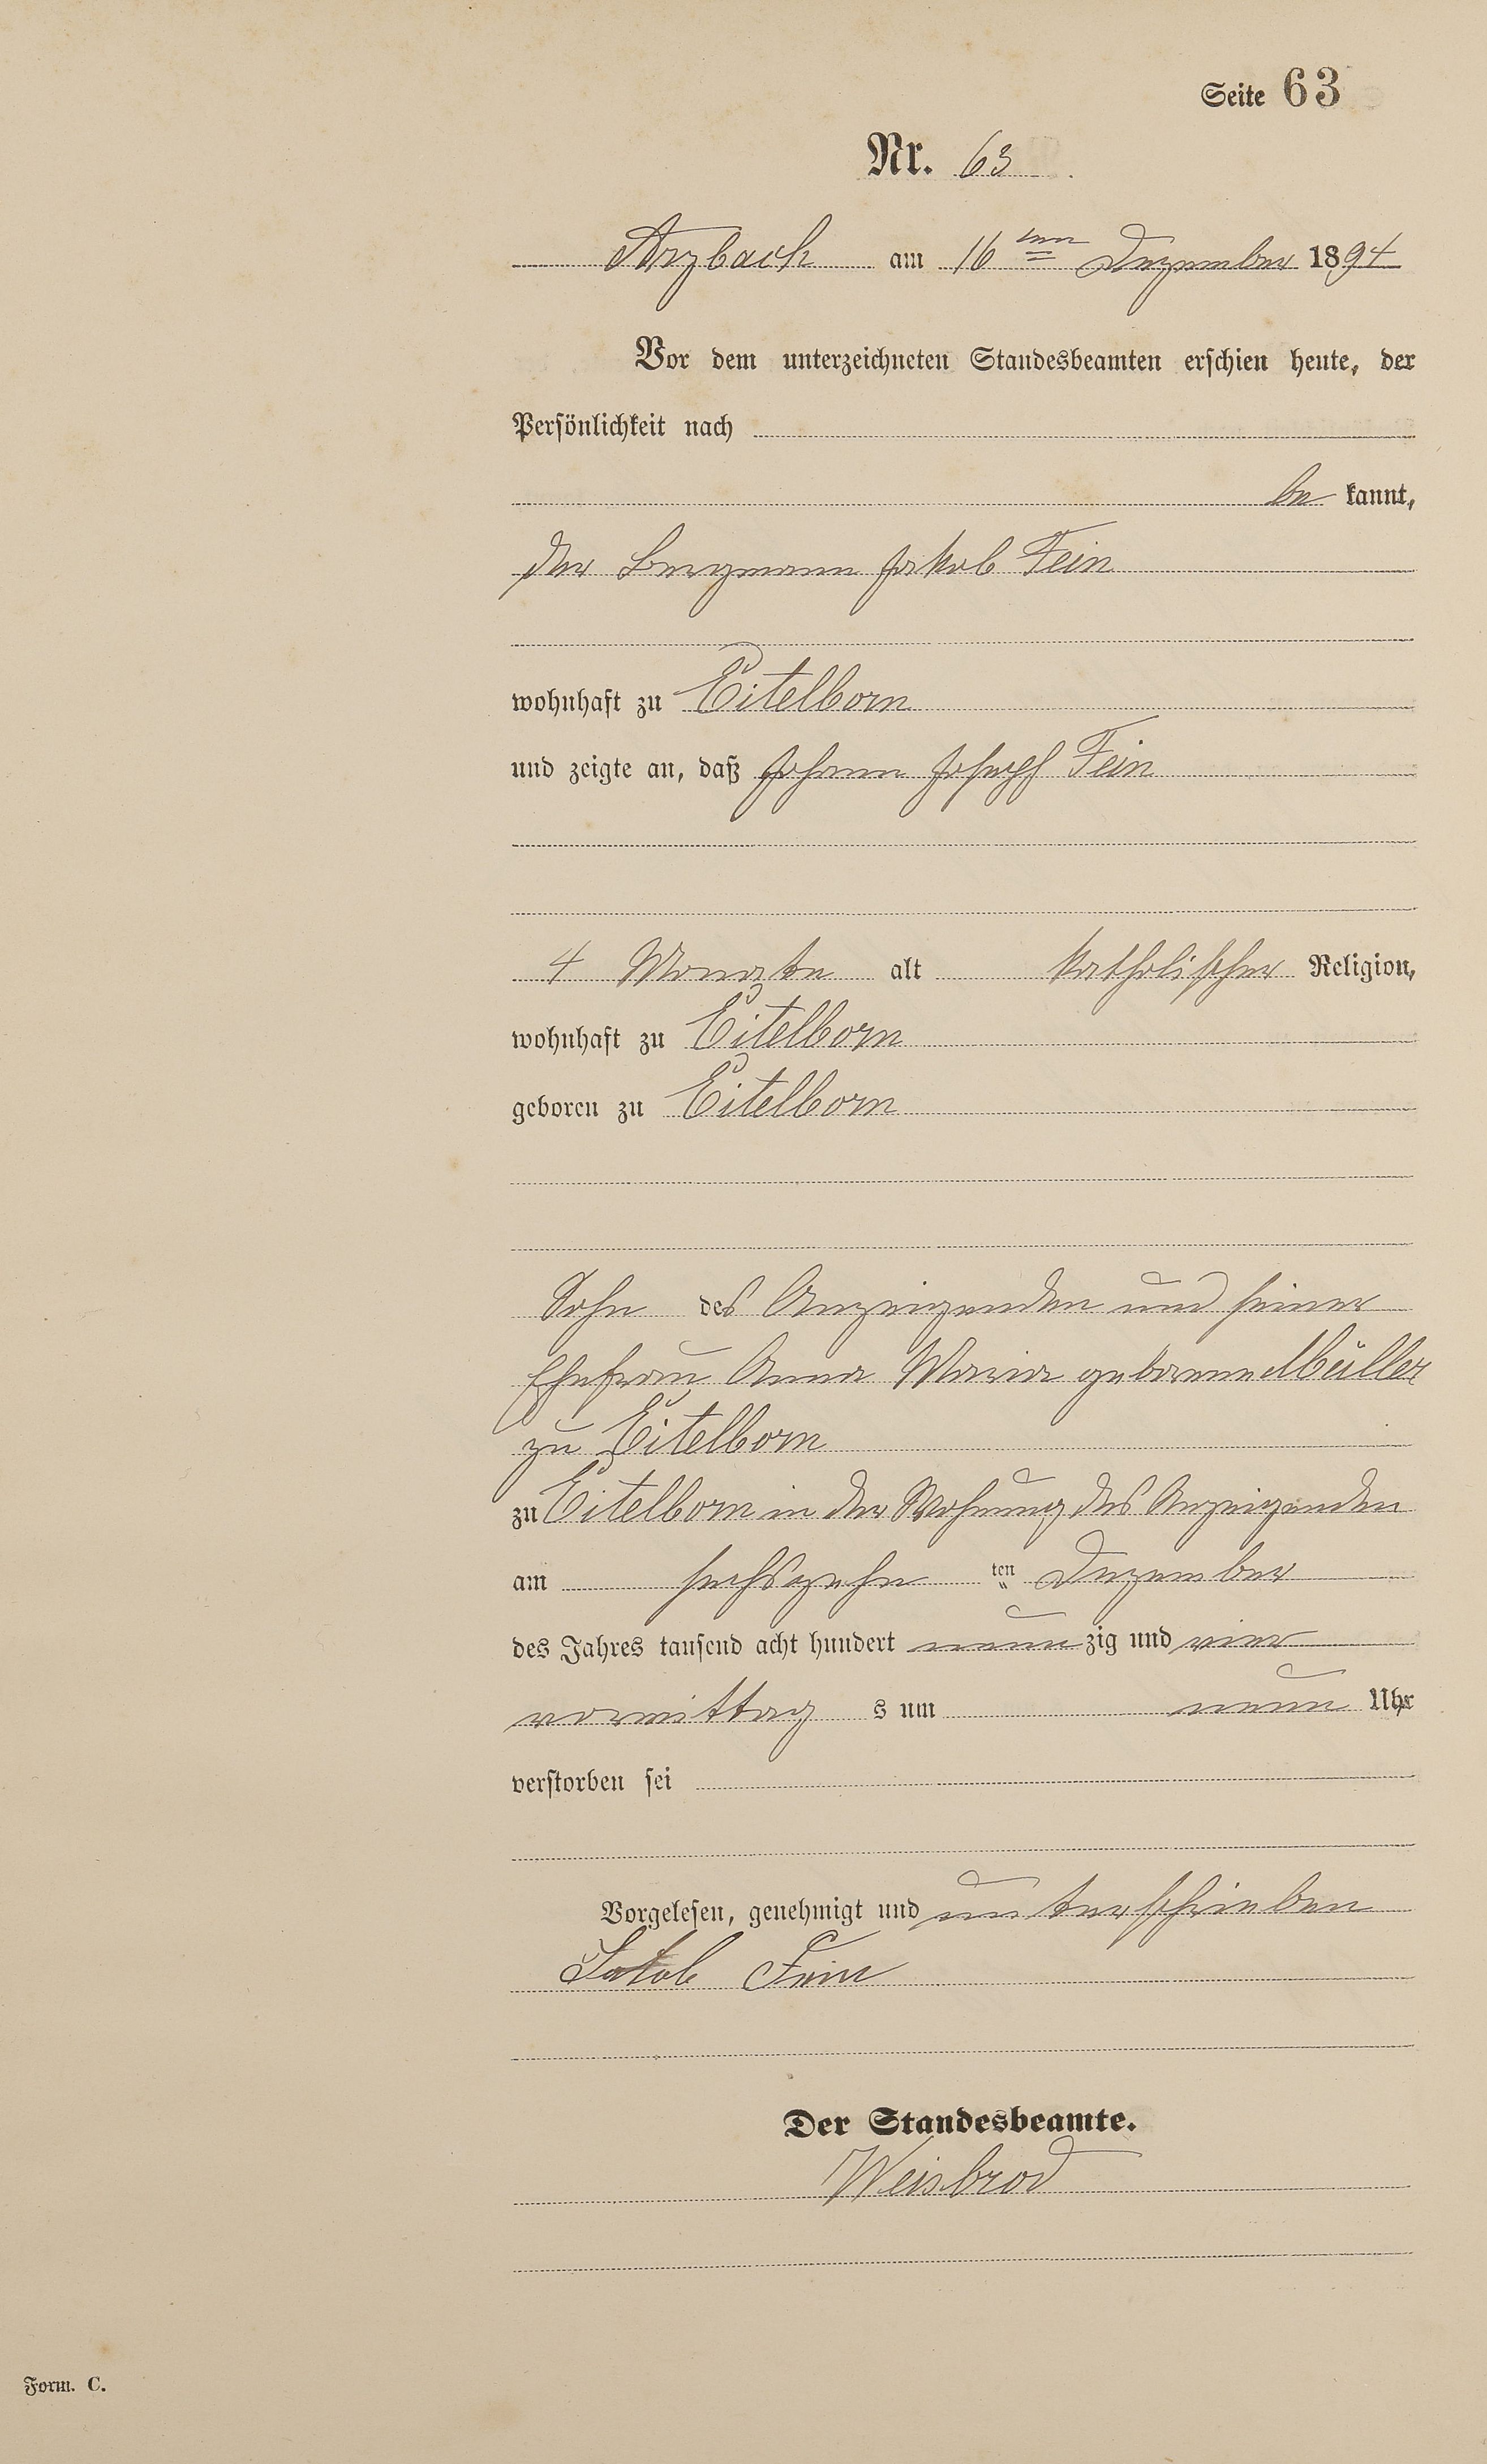 Seite 63
Nr. 63
Arzbach am 16ten Dezember 1894
Vor dem unterzeichneten Standesbeamten erschien heute, der
Persönlichkeit nach
be kannt,
der Bergmann Jakob Fein
wohnhaft zu Eitelborn
und zeigte an, daß Johann Joseph Fein
4 Monate alt katholischer Religion,
wohnhaft zu Eitelborn
geboren zu Eitelborn
Sohn des Anzeigenden und seiner
Ehefrau Anna Maria geborene Müller
zu Eitelborn
zu Eitelborn in der Wohnung des Anzeigenden
am sechszehn ten Dezember
des Jahres tausend acht hundert neun zig und vier
vormittag s um neun Uhr
verstorben sei
Vorgelesen, genehmigt und unterschrieben
Jakob Fein
Der Standesbeamte.
Weisbrod
Form. C.